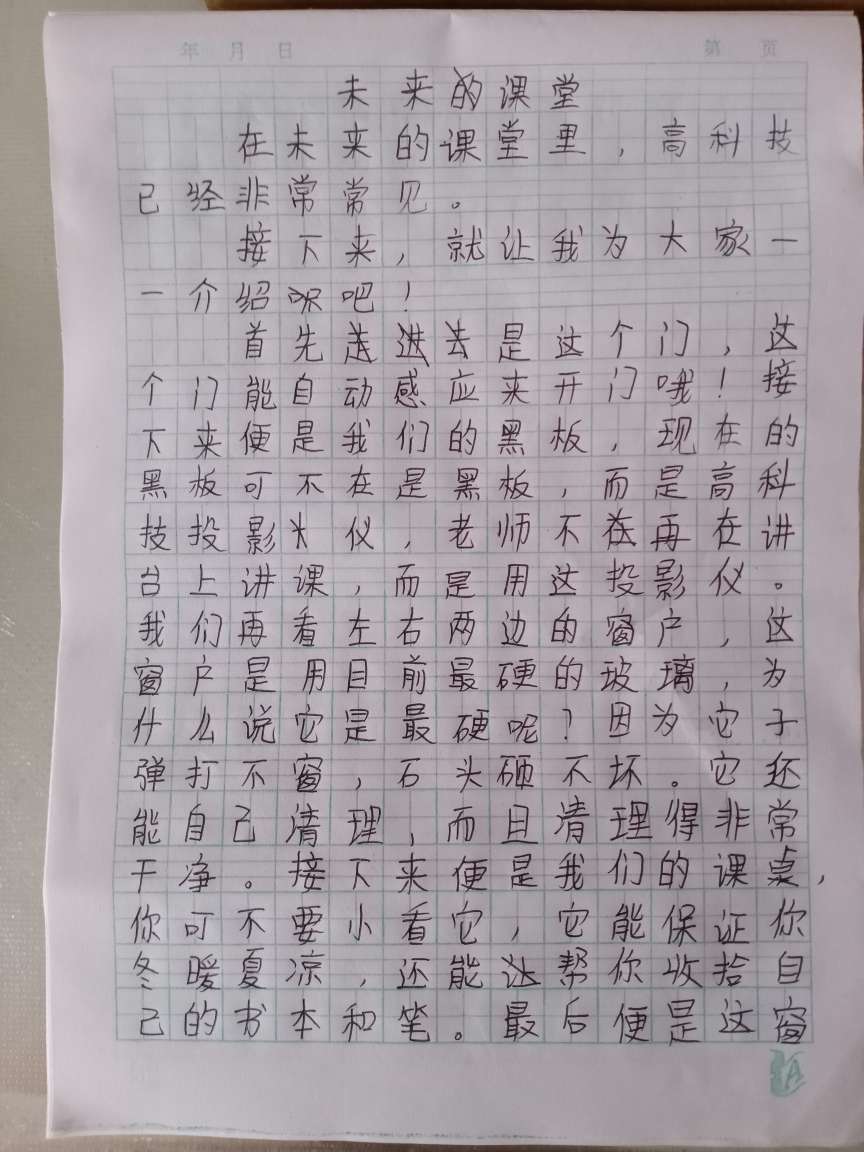 年 月 日 第 页
未来的课堂
在未来的课堂里，高科技
已经非常常见。
接下来，就让我为大家一
一介绍吧！
首先走进去是这个门，这
个门能自动感应来开门哦！接
下来便是我们的黑板，现在的
黑板可不在是黑板，而是高科
技投影仪，老师不再在讲
台上讲课，而是用这投影仪。
我们再看左右两边的窗户，这
窗户是用目前最硬的玻璃，为
什么说它是最硬呢？因为它子
弹打不窗，石头砸不坏。它还
能自己清理，而且清理得非常
干净。接下来便是我们的课桌，
你可不要小看它，它能保证你
冬暖夏凉，还能帮你收拾自
己的书本和笔。最后便是这窗